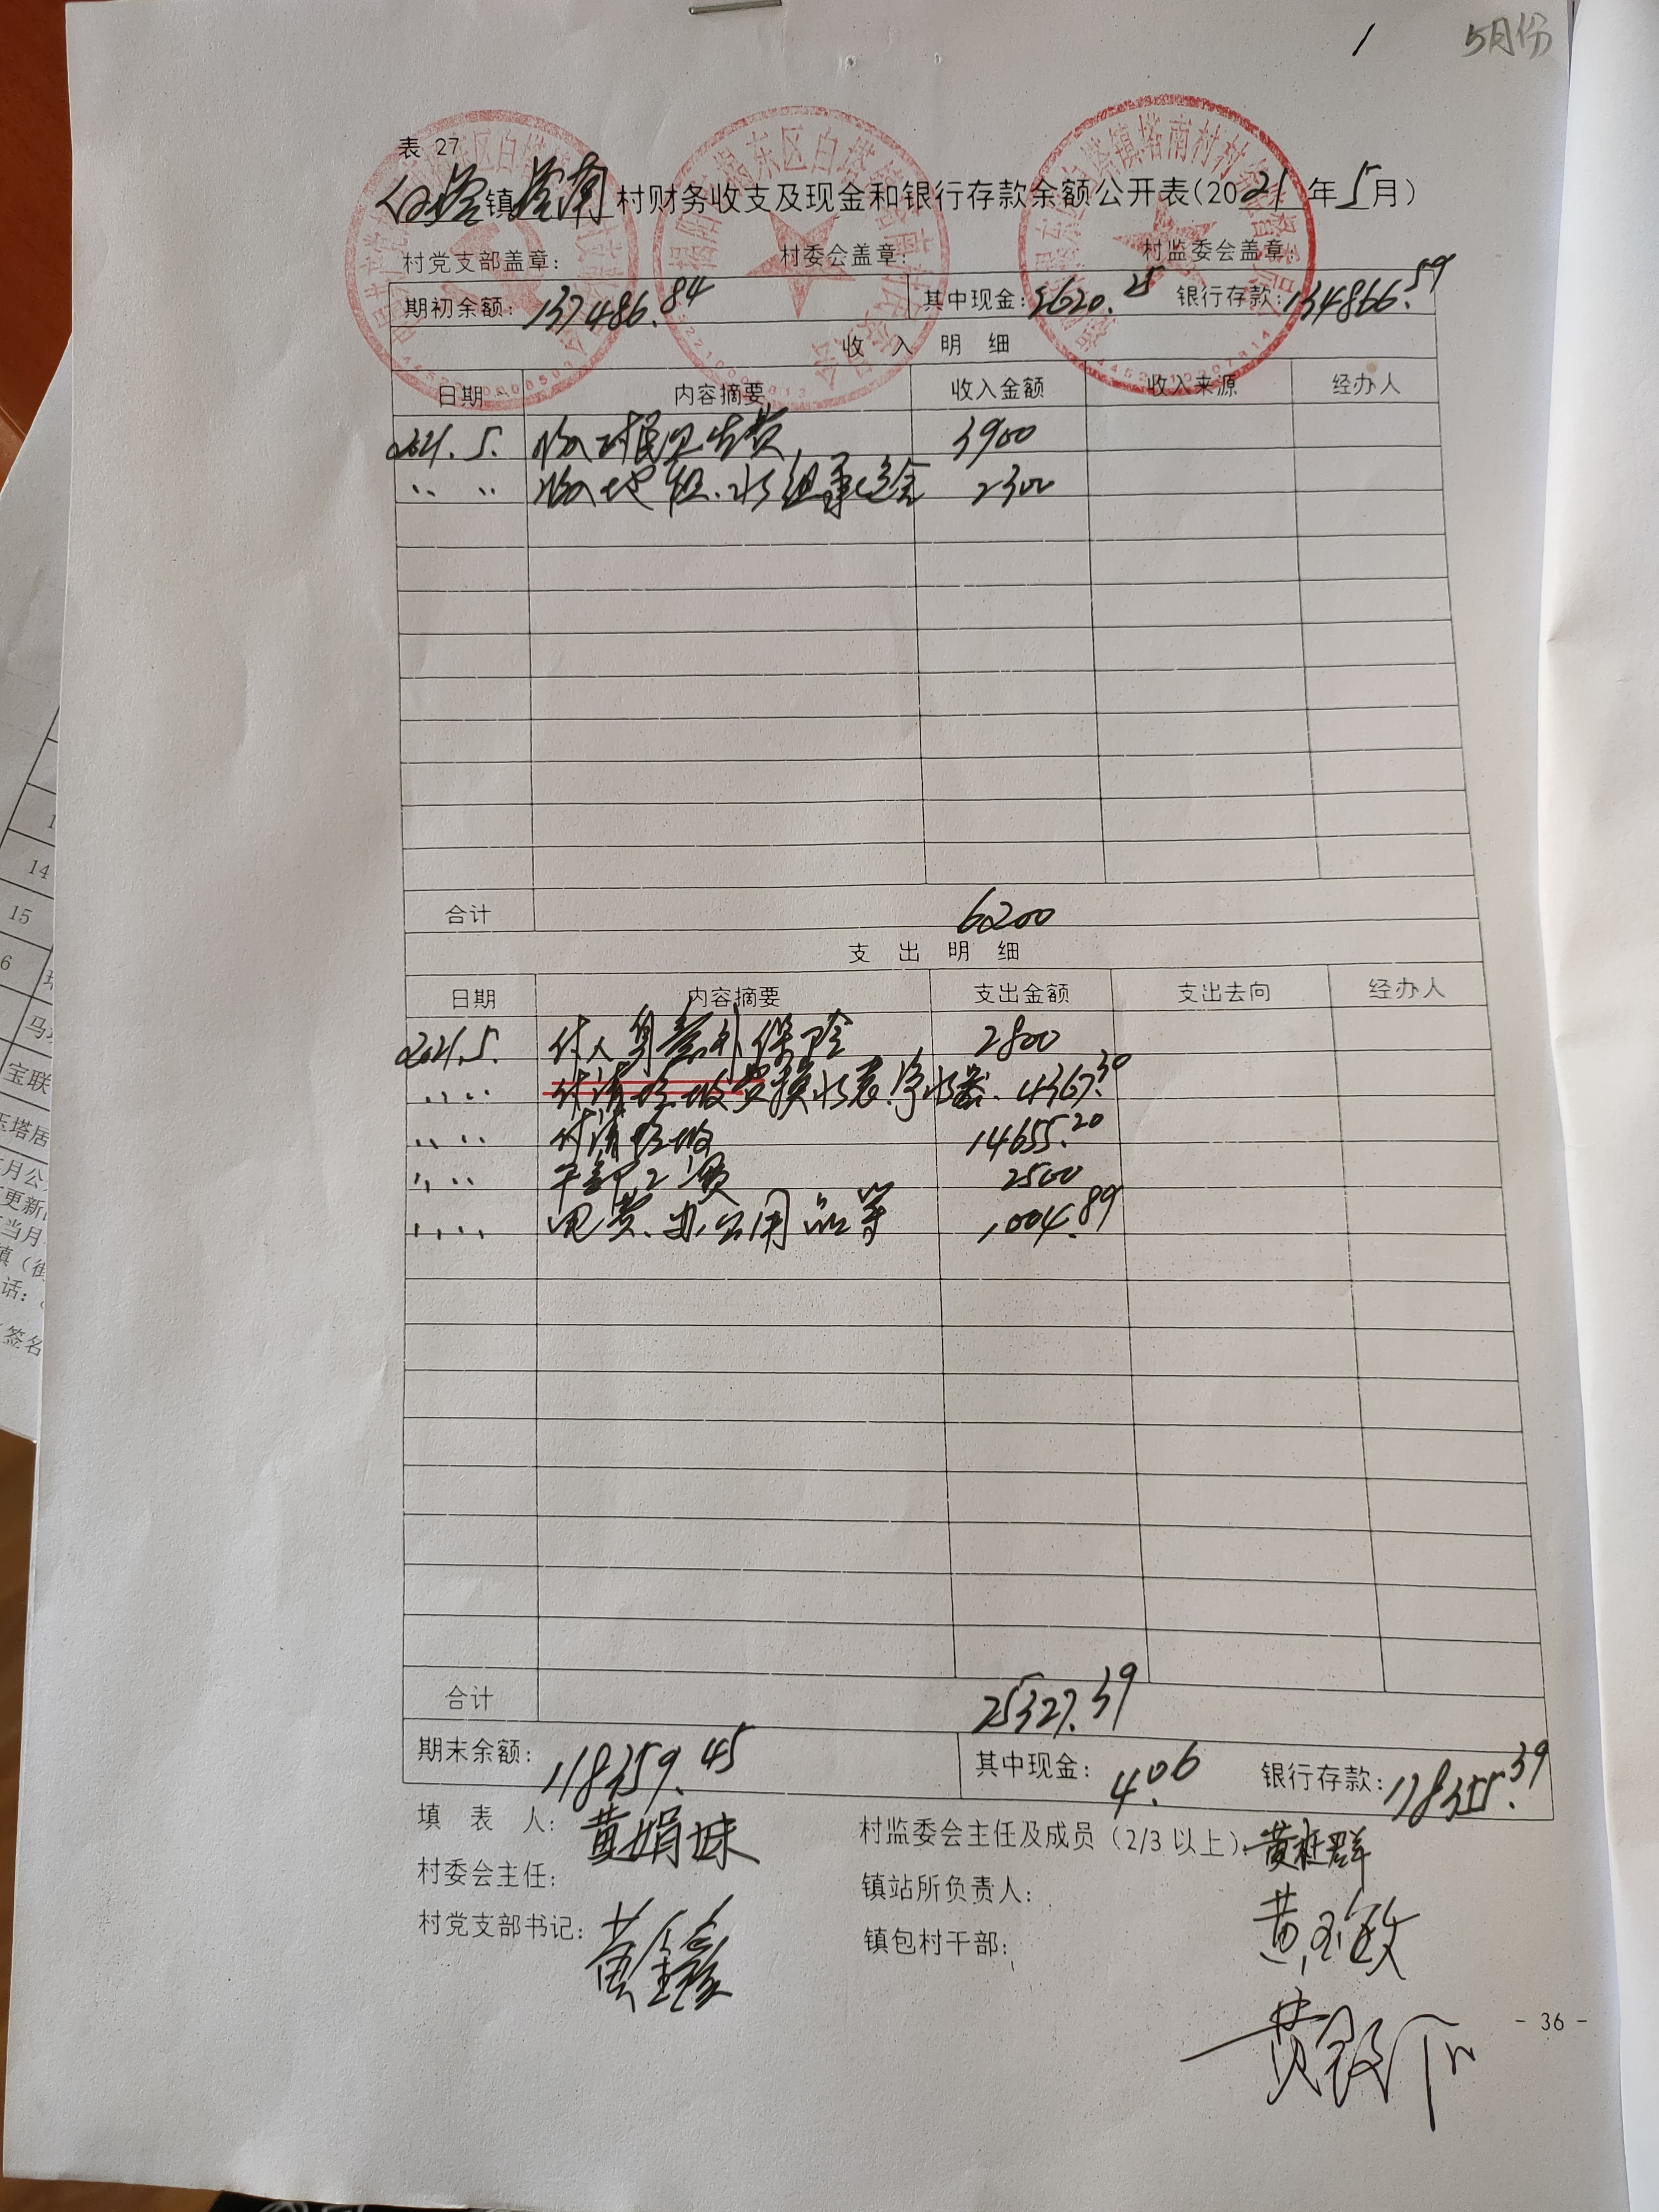 1 5月份
表 27
白塔镇塔南村财务收支及现金和银行存款余额公开表(2021年5月)
村党支部盖章: 村委会盖章: 村监委会盖章:
期初余额: 137486.84 其中现金: 2620.25 银行存款: 134866.59
收 入 明 细
日期 内容摘要 收入金额 收入来源 经办人
2021.5. 收村民卫生费 3900
〃 〃 收地租.水组承包金 2300
合计 6200
支 出 明 细
日期 内容摘要 支出金额 支出去向 经办人
2021.5. 付人身意外保险 2800
〃 〃 付清垃圾费换水表.净水器. 4367.30
〃 〃 付清垃圾 14655.20
〃 〃 干部工资 2500
〃 〃 电费.办公用品等 1004.89
合计 25327.39
期末余额: 118359.45 其中现金: 4.06 银行存款: 118355.39
填 表 人: 黄娟妹 村监委会主任及成员(2/3 以上): 黄旺群
村委会主任: 镇站所负责人:
村党支部书记: 黄 镇包村干部: 黄 敏
黄
- 36 -
14
15
6
马
宝联
玉塔居
月公
更新
当月
镇(街
话:
签名